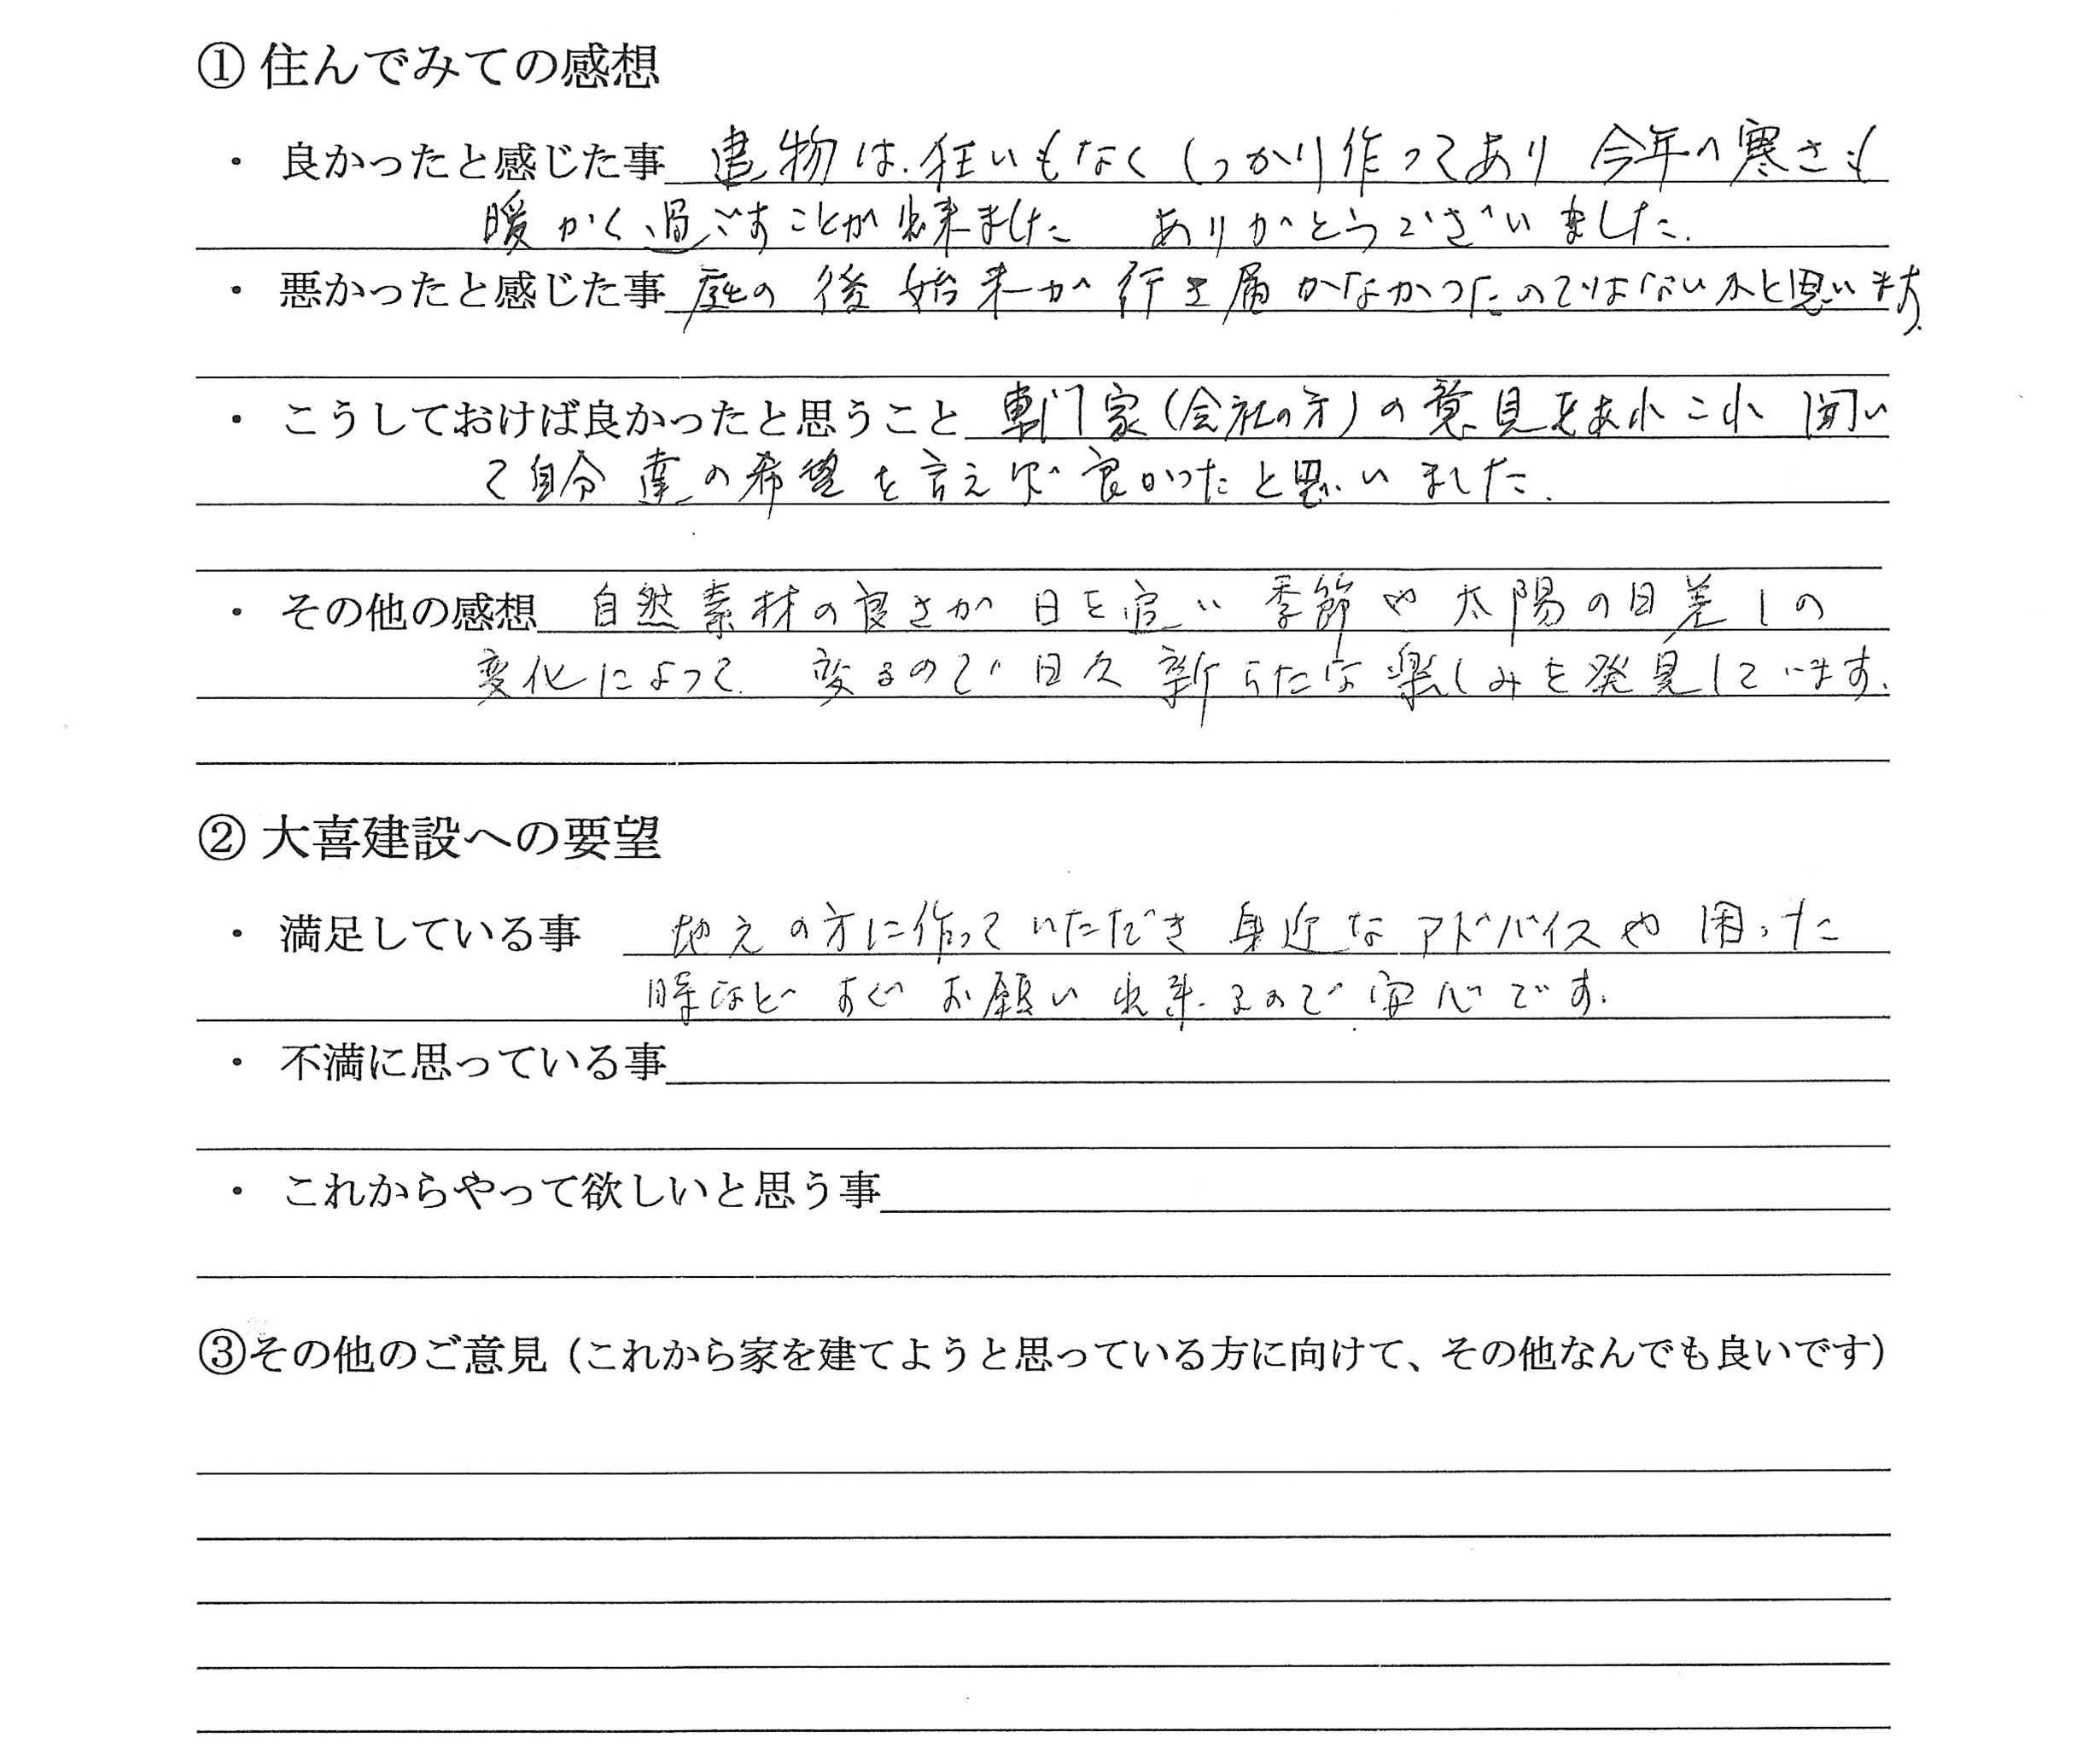 ① 住んでみての感想
・ 良かったと感じた事 建物は狂いもなくしっかり作ってあり 今年の寒さも
暖かく過ごすことが出来ました ありがとうございました.
・ 悪かったと感じた事 庭の後始末が行き届かなかったのではないかと思います.
・ こうしておけば良かったと思うこと 専門家(会社の方)の意見をあれこれ聞い
て自分達の希望を言えば良かったと思いました.
・ その他の感想 自然素材の良さが日を追い季節や太陽の日差しの
変化によって変るので日々新らたな楽しみを発見しています.
② 大喜建設への要望
・ 満足している事 地元の方に作っていただき身近なアドバイスや困った
時などすぐお願い出来るので安心です.
・ 不満に思っている事
・ これからやって欲しいと思う事
③その他のご意見（これから家を建てようと思っている方に向けて、その他なんでも良いです）